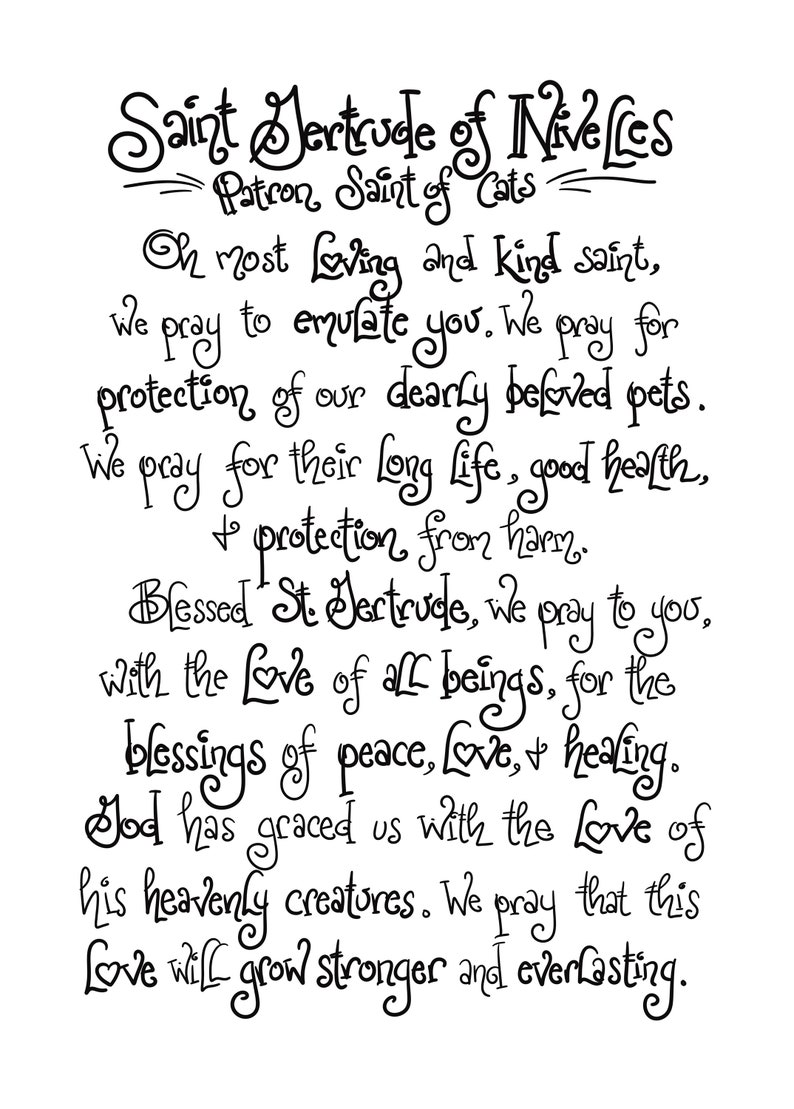 Saint Gertrude of Nivelles
Patron Saint of Cats
Oh most Loving and kind saint,
We pray to emulate you. We pray for
protection of our dearly beloved pets.
We pray for their Long Life, good health,
& protection from harm.
Blessed St. Gertrude, We pray to you,
with the Love of all beings, for the
blessings of peace, Love, & healing.
God has graced us with the Love of
his heavenly creatures. We pray that this
Love will grow stronger and everlasting.